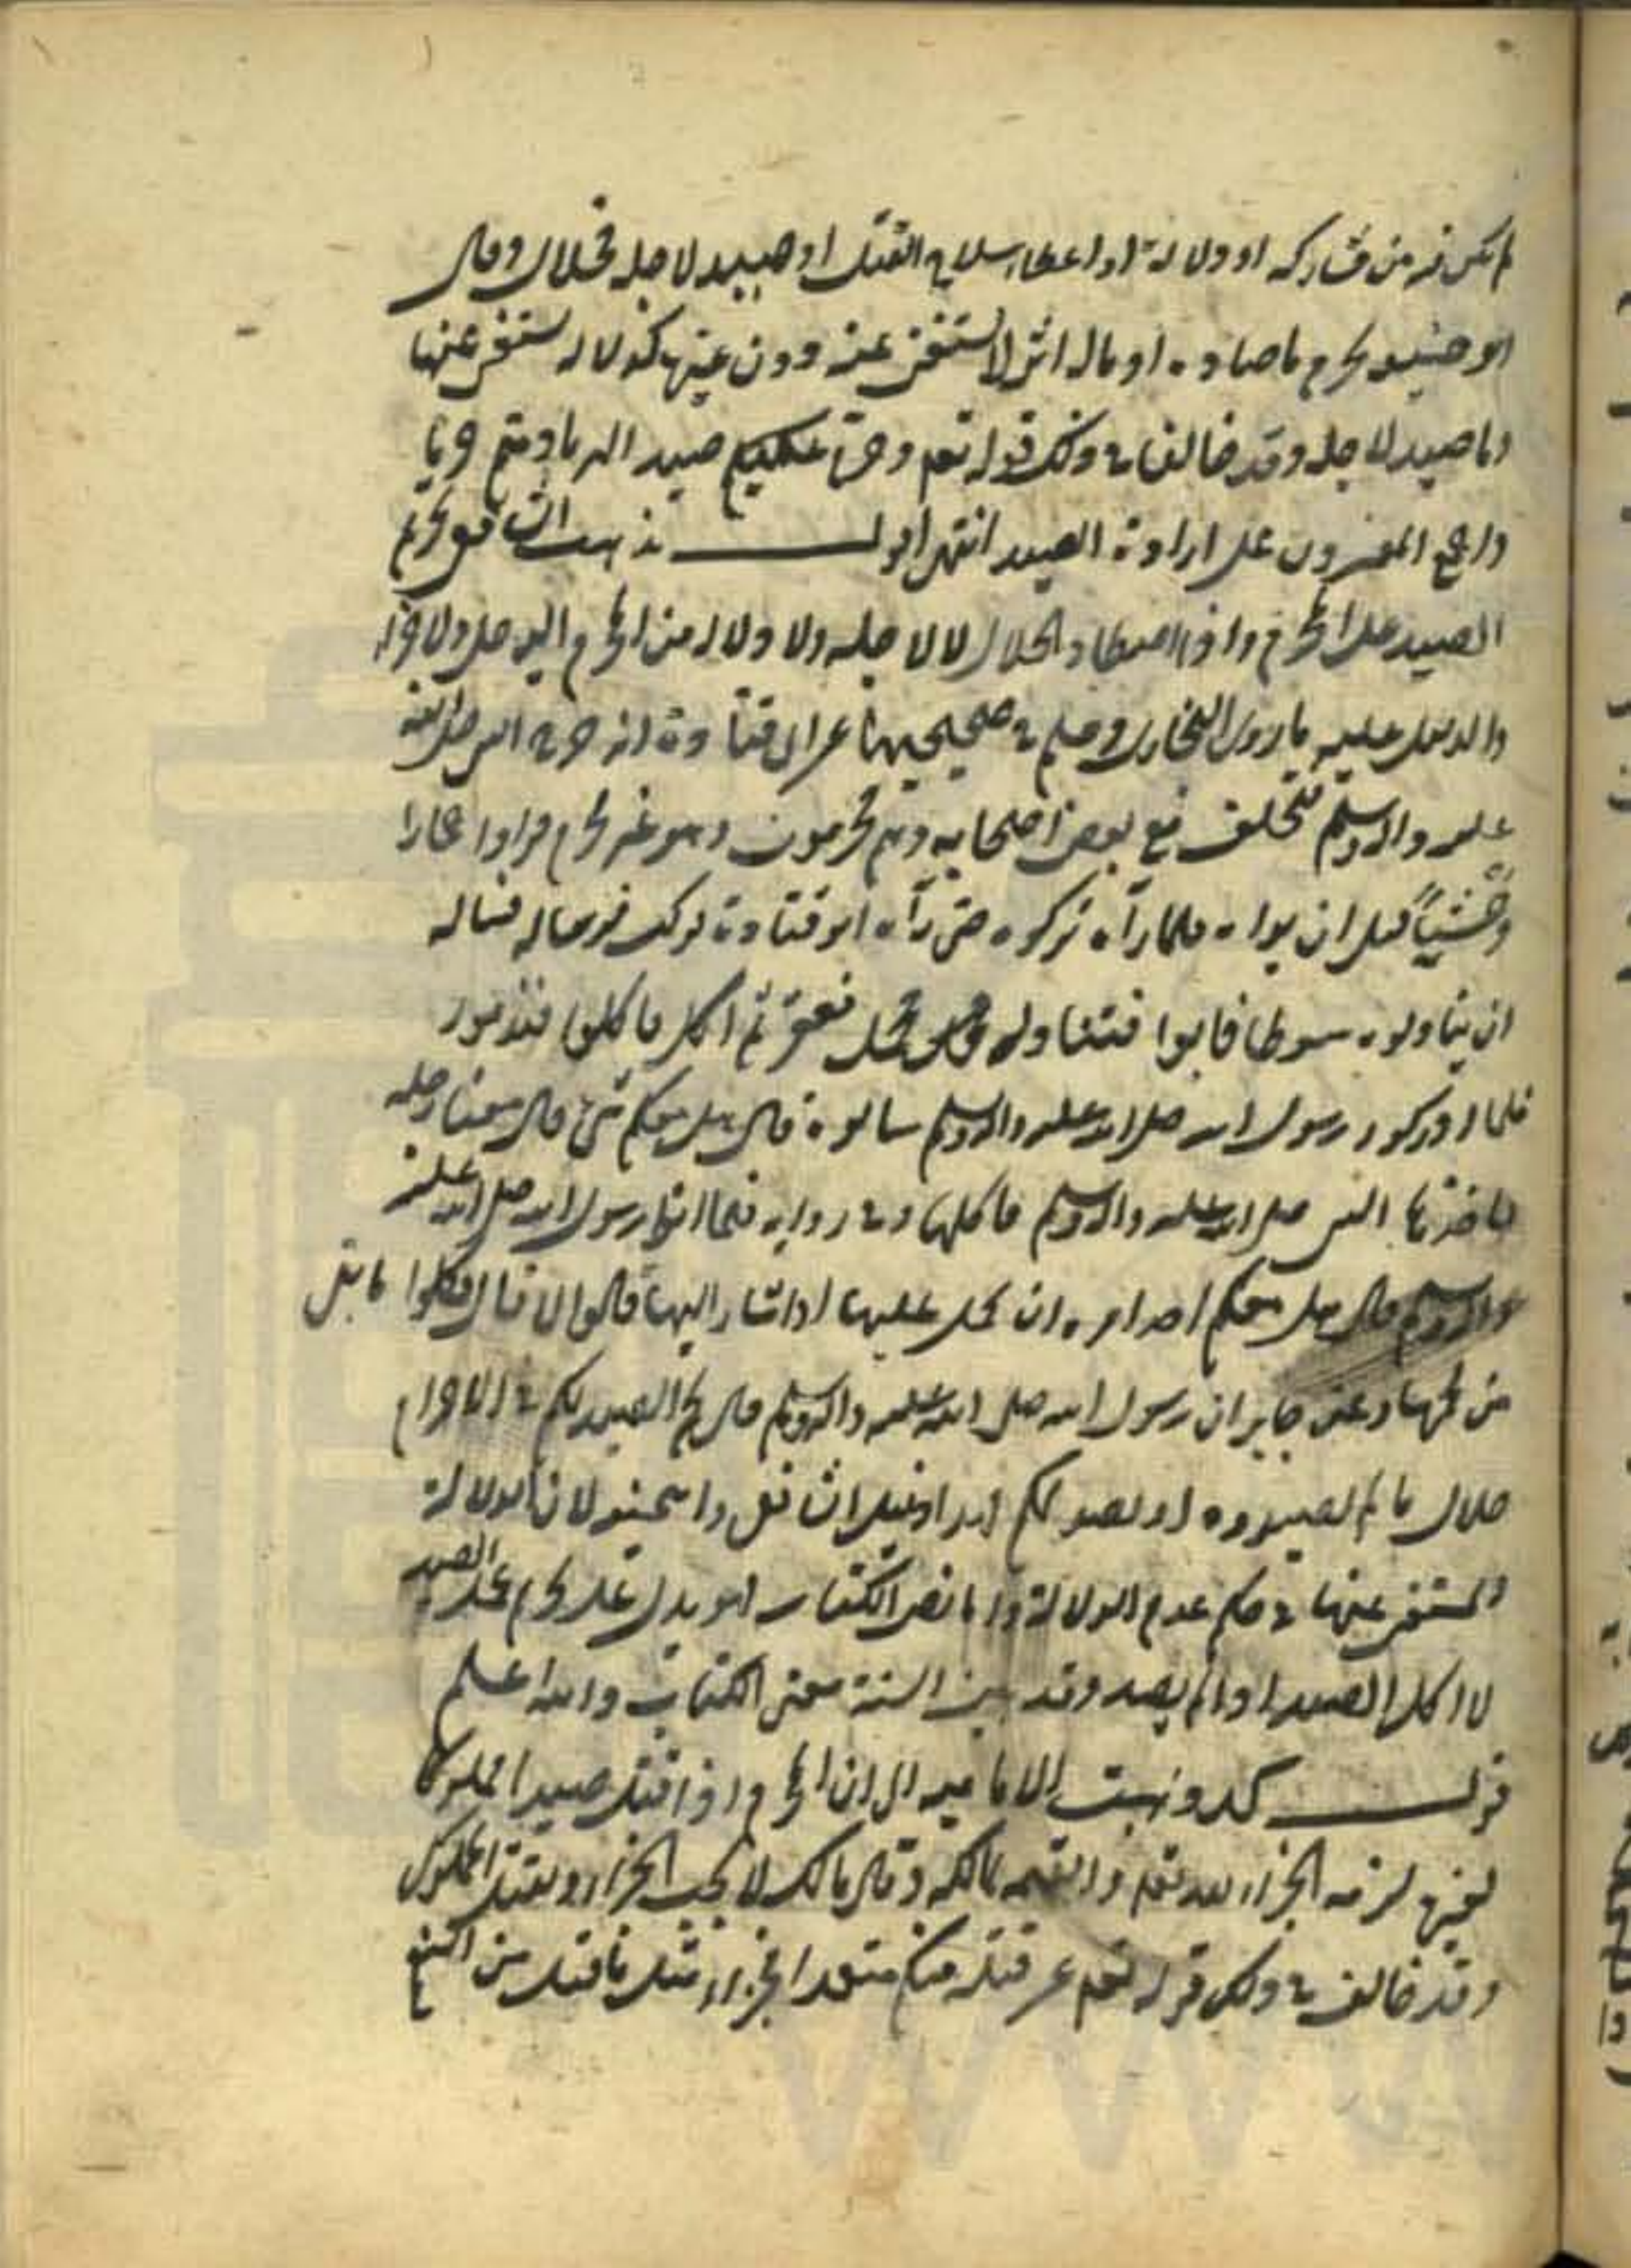 لم يكن فيه من مشاركه او دلالة او اعطاء سلاح القتل او صيد لاجله فحلال وقال
ابو حنيفة يحرم ما صاده او ماله اثر لا يستغنى عنه دون غيره كدلالة يستغنى عنها
وما صيد لاجله وقد خالف في ذلك قوله تعم وحرم عليكم صيد البر ما دمتم حرما
واجمع المفسرون على ارادة الصيد انتهى اقول مذهب الشافعي تحريم
الصيد على المحرم واذا اصطاد الحلال لا لاجله ولا دلالة من المحرم اليه حل
والدليل عليه ما روى البخاري ومسلم في صحيحيهما عن ابي قتادة انه خرج مع النبي صلى الله
عليه واله وسلم فتخلف مع بعض اصحابه وهم محرمون وهو غير محرم فراوا حمارا
وحشيا قبل ان يراه فلما رآه تركوه حتى رآه ابو قتادة فركب فرسا له فساله
ان يناولوه سوطا فابوا فتناوله فحمل فعقره ثم اكل فاكلوا فندموا
فلما ادركوا رسول الله صلى الله عليه واله وسلم سالوه قال هل معكم شئ قال معنا رجله
فاخذها النبي صلى الله عليه واله وسلم فاكلها وفي رواية فلما اتوا رسول الله صلى الله عليه
واله وسلم قال هل معكم احد امره ان يحمل عليها او اشار اليها قالوا لا قال فكلوا ما بقى
من لحمها وعن جابر ان رسول الله صلى الله عليه واله وسلم قال لحم الصيد لكم في الاحرام
حلال ما لم تصيدوه او يصد لكم
المستغنى عنها في حكم عدم الدلالة واما نص الكتاب فهو يدل على تحريم الصيد
لا اكل الصيد اذا لم يصد وقد بين السنة معنى الكتاب والله اعلم
قولـــه ذهبت الامامية الى ان المحرم اذا قتل صيدا مملوكا
لغيره لزمه الجزاء لله تعم والقيمة لمالكه وقال مالك لا يجب الجزاء بقتل المملوك
وقد خالف في ذلك قوله تعم من قتله منكم متعمدا فجزاء مثل ما قتل من النعم